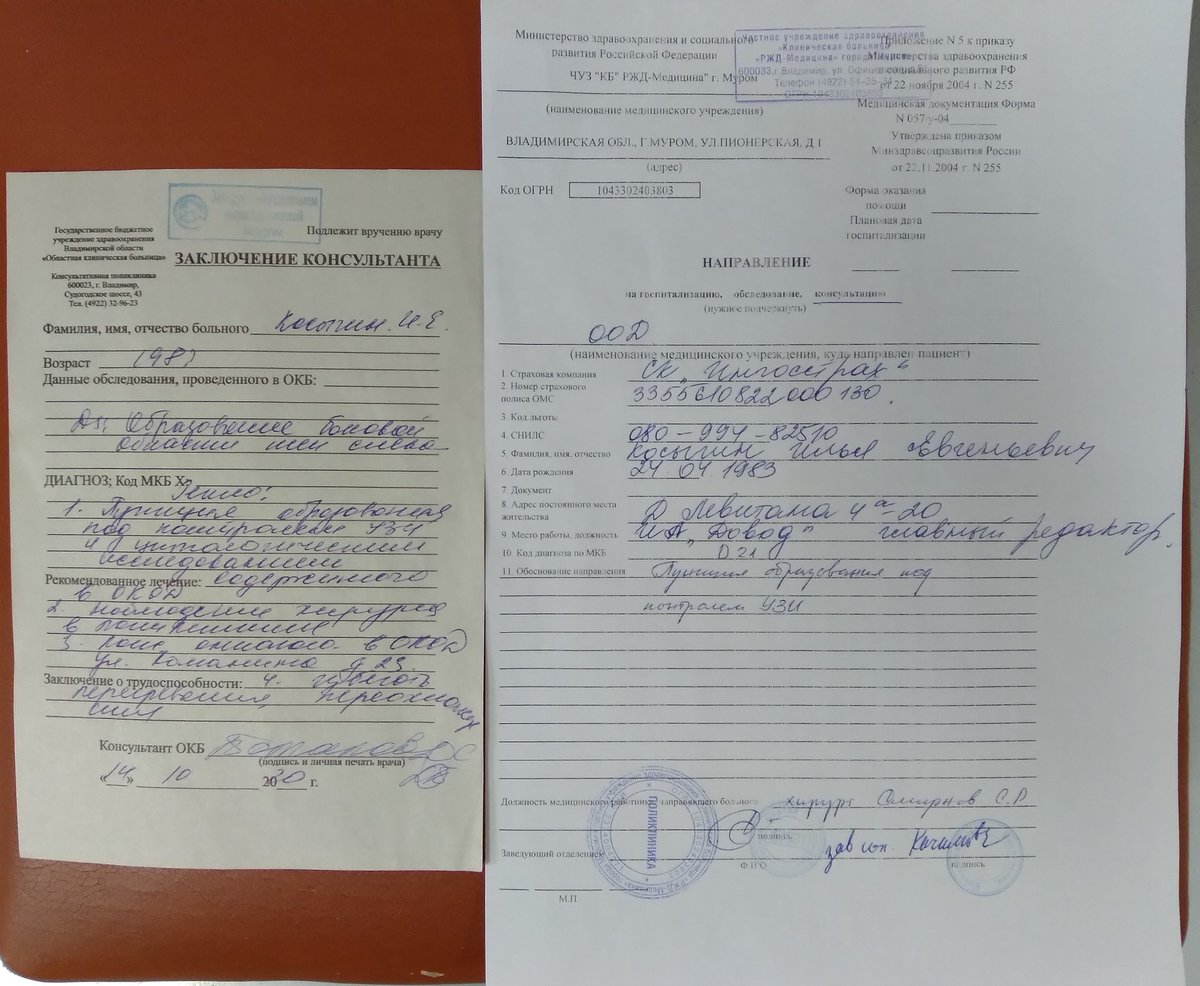 Государственное бюджетное
учреждение здравоохранения
Владимирской области
«Областная клиническая больница»
Консультативная поликлиника
600023, г. Владимир,
Судогодское шоссе, 43
Тел. (4922) 32-96-23
Подлежит вручению врачу
ЗАКЛЮЧЕНИЕ КОНСУЛЬТАНТА
Фамилия, имя, отчество больного Косыгин И.Е.
Возраст 1983
Данные обследования, проведенного в ОКБ:
Ds: Образование боковой
области шеи слева
ДИАГНОЗ; Код МКБ X:
1. Пункция образования
под контролем УЗИ
с цитологическим
исследованием
Рекомендованное лечение: содержимого
в ОКОД
2. наблюдение хирурга
в поликлинике
3. конс. онколога в ОКОД
ул. Каманина д 23.
Заключение о трудоспособности: 4. избегать
перегревания, переохлажде
ния
Консультант ОКБ
(подпись и личная печать врача)
«14» 10 2020 г.
Министерство здравоохранения и социального
развития Российской Федерации
ЧУЗ "КБ" РЖД-Медицина" г. Муром
(наименование медицинского учреждения)
ВЛАДИМИРСКАЯ ОБЛ., Г.МУРОМ, УЛ.ПИОНЕРСКАЯ, Д 1
(адрес)
Код ОГРН 1043302403803
Частное учреждение здравоохранения
«Клиническая больница
«РЖД-Медицина» города Муром»
600033, г Владимир, ул.
Телефон (4922) 54-35-34
ОГРН 1043302403803
Приложение N 5 к приказу
Министерства здравоохранения
и социального развития РФ
от 22 ноября 2004 г. N 255
Медицинская документация Форма
N 057/у-04
Утверждена приказом
Минздравсоцразвития России
от 22.11.2004 г. N 255
Форма оказания
помощи
Плановая дата
госпитализации
НАПРАВЛЕНИЕ
на госпитализацию, обследование, консультацию
(нужное подчеркнуть)
ООД
(наименование медицинского учреждения, куда направлен пациент)
1. Страховая компания СК "Ингосстрах"
2. Номер страхового
полиса ОМС 3355610822000130.
3. Код льготы
4. СНИЛС 080-994-82510
5. Фамилия, имя, отчество Косыгин Илья Евгеньевич
6. Дата рождения 24 04 1983
7. Документ
8. Адрес постоянного места
жительства Д Левитана 4а-20
9. Место работы, должность ИА "Довод" главный редактор.
10. Код диагноза по МКБ D21
11. Обоснование направления Пункция образования под
контролем УЗИ
Должность медицинского работника, направившего больного хирург Смирнов С.А
подпись
Заведующий отделением зав
Ф.И.О.
подпись
М.П.
ПОЛИКЛИНИКА